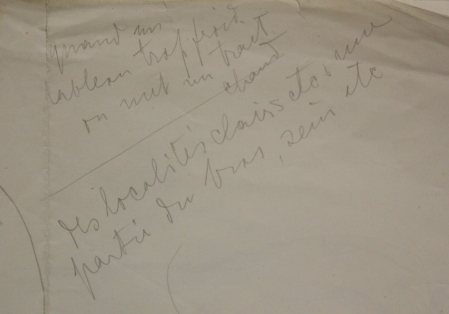 quand un
tableau trop froid
on met un
chaud
des localités clairs etc : une
partie du bras, sein etc